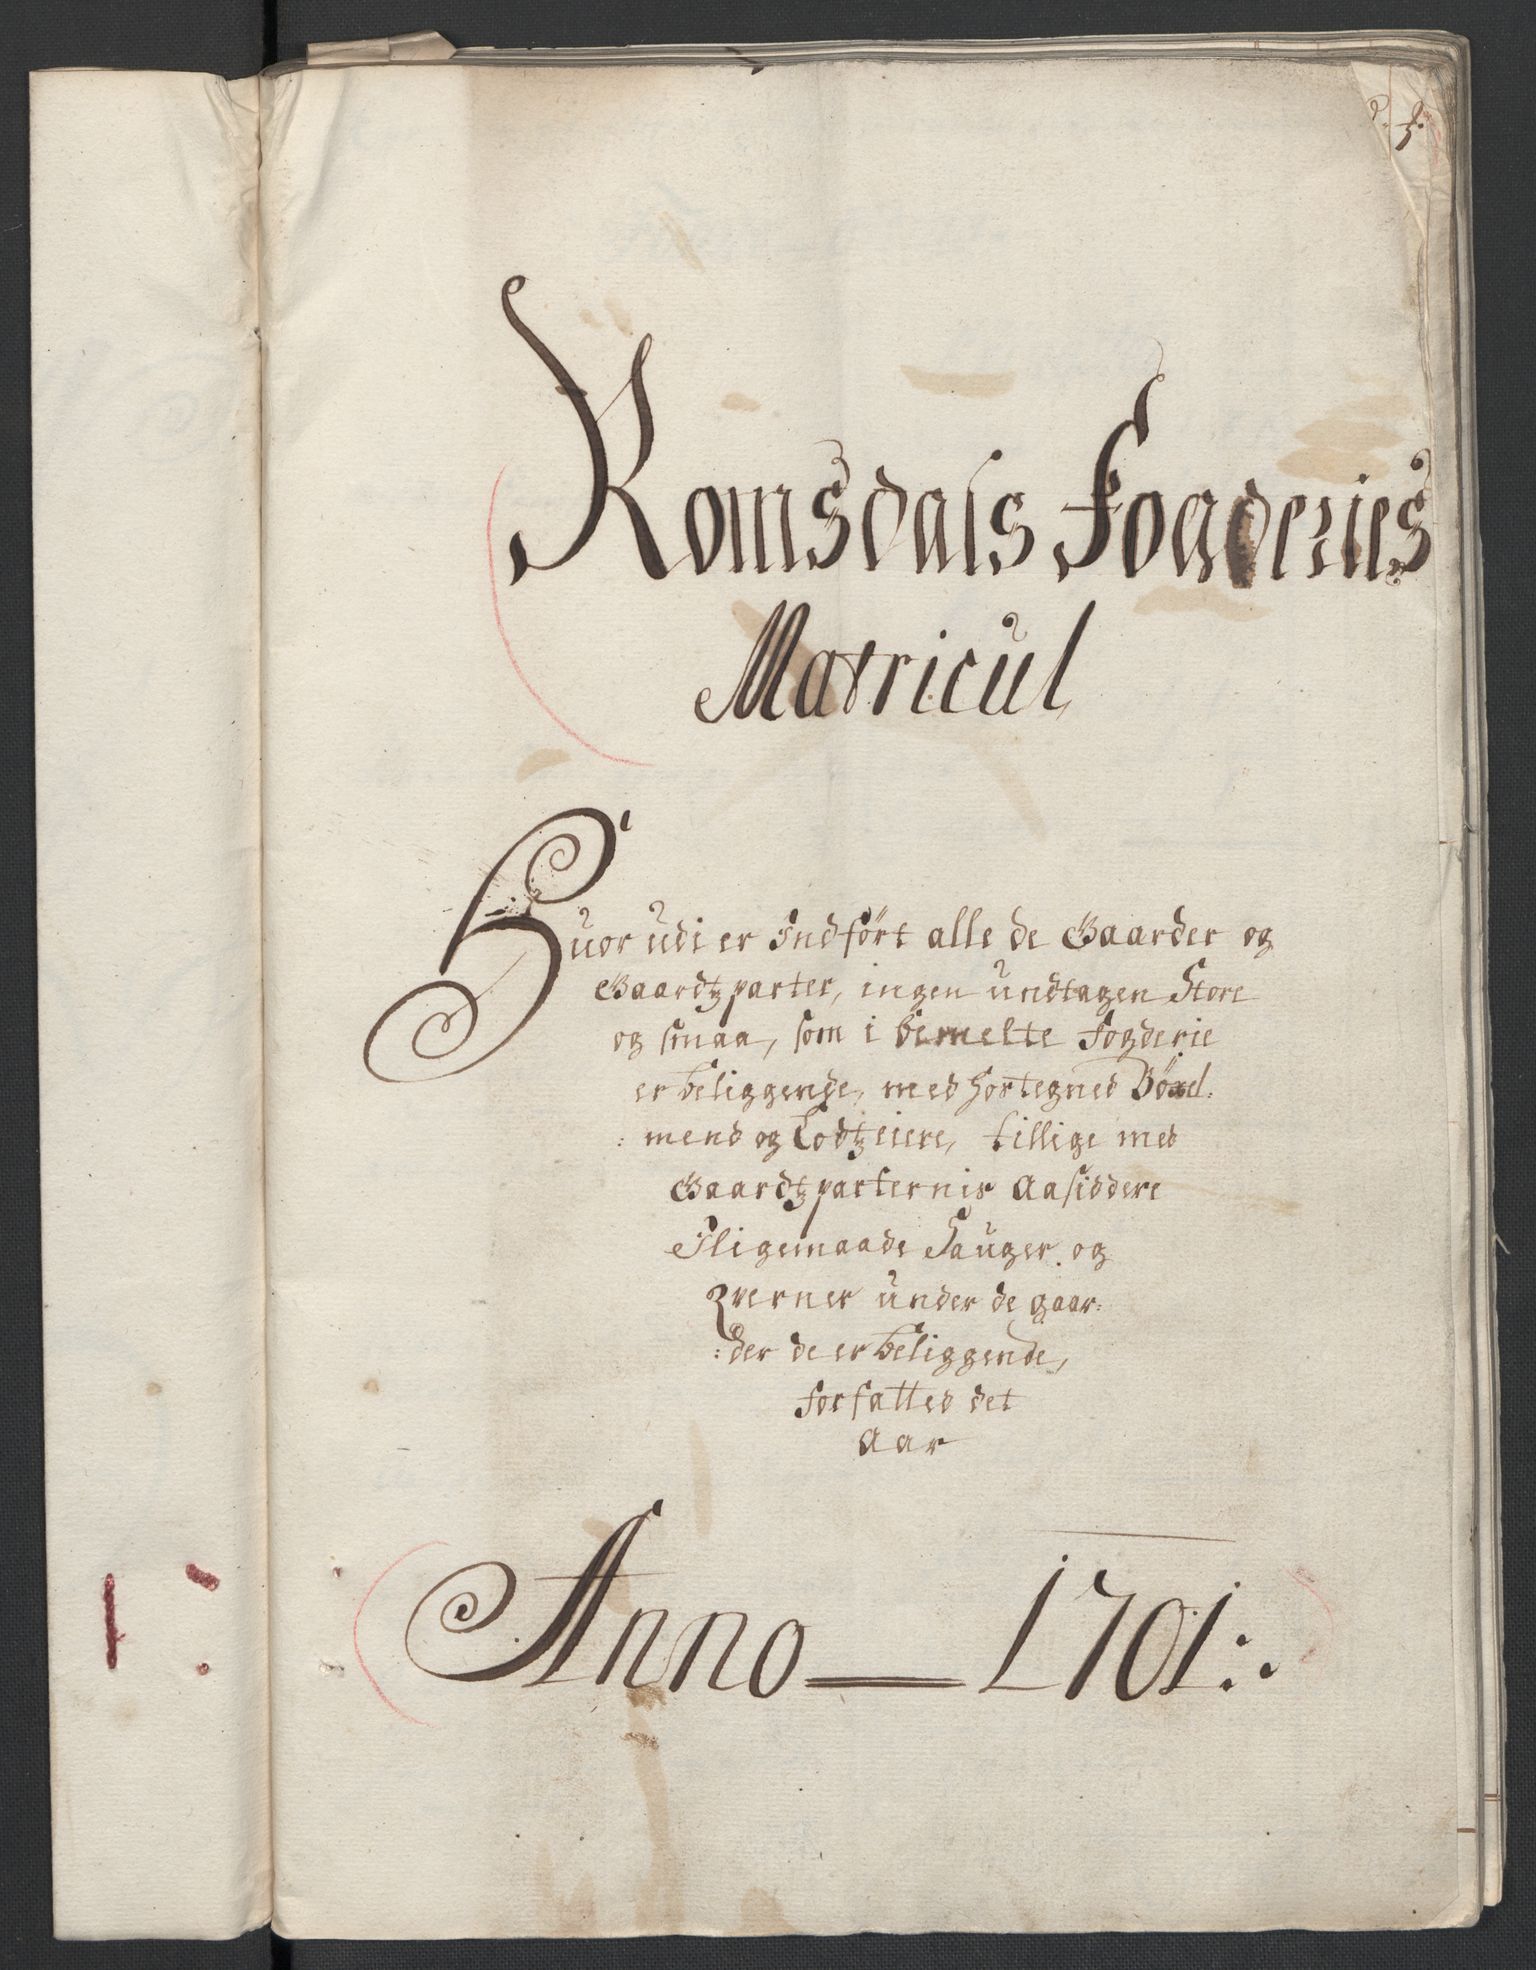 Romsdals Fogderies
Matricul
Huor udi er Indført alle de Gaarder og
Gaardtz parter, ingen undtagen Store
og smaa, som i bemelte Fogderie
er beliggende, med hostegned Böxel:
:mend og Lodtzeiere, tillige med
Gaardtzparternis Aasiddere
Sligemaade Sauger og
Qverner under de gaar:
:der de er beliggende,
forfatted det
Aar
Anno 1701:.